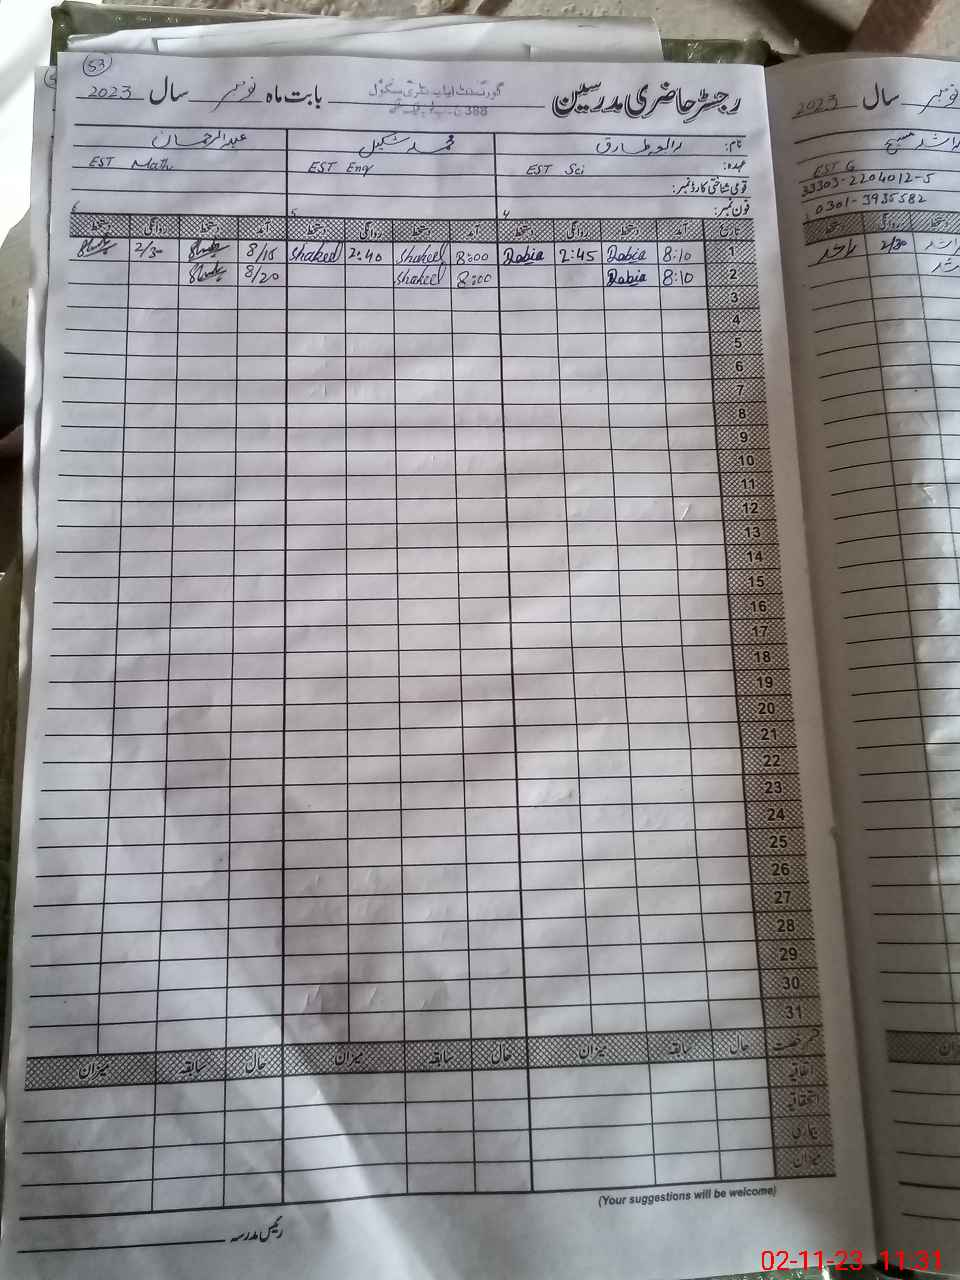 53
رجسٹر حاضری مدرسین
گورنمنٹ سکول
388
بابت ماہ نومبر سال 2023
نام: رابعہ طارق محمد شکیل عبدالرحمان
عہدہ: EST Sci EST Eng EST Math
قومی شناختی کارڈ نمبر:
فون نمبر:
4 5 6
تاریخ آمد دستخط روانگی دستخط آمد دستخط روانگی دستخط آمد دستخط روانگی دستخط
1 8:10 Rabia 2:45 Rabia 8:00 Shakeel 2:40 Shakeel 8/15 2/30
2 8:10 Rabia 8:00 Shakeel 8/20
3
4
5
6
7
8
9
10
11
12
13
14
15
16
17
18
19
20
21
22
23
24
25
26
27
28
29
30
31
قسم رخصت حال سابقہ میزان حال سابقہ میزان حال سابقہ میزان
اتفاقیہ
استحقاقیہ
بیماری
میزان
(Your suggestions will be welcome)
رئیس مدرسہ
سال 2023
EST G
33303-2204012-5
0301-3935582
2/30
02-11-23 11:31